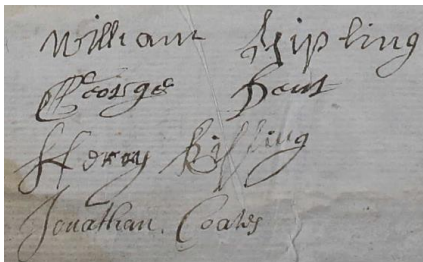 William Kipling
George Kent
Henry Kipling
Jonathan Coates